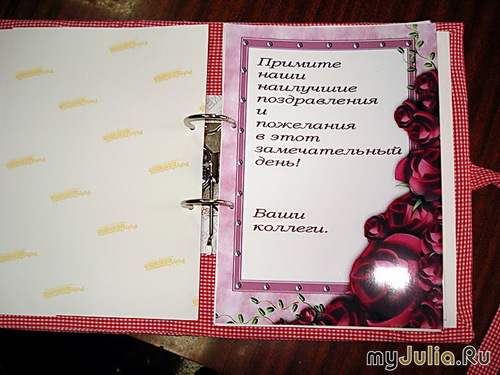 Примите
наши
наилучшие
поздравления
и
пожелания
в этот
замечательный
день!
Ваши
коллеги.
myJulia.Ru